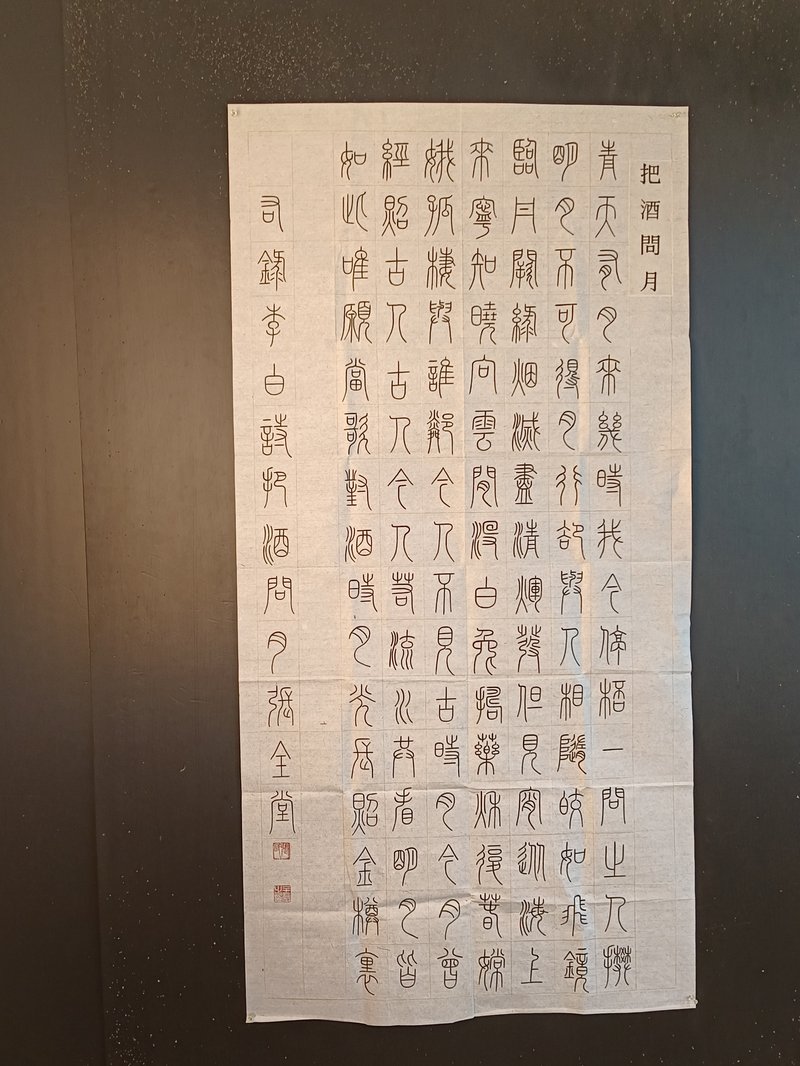 把酒問月
青天有月來幾時我今停桮一問之人攀
明月不可得月行卻與人相隨皎如飛鏡
臨丹闕綠烟滅盡清輝發但見宵從海上
來寧知曉向雲間沒白兔搗藥秋復春嫦
娥孤棲與誰鄰今人不見古時月今月曾
經照古人古人今人若流水共看明月皆
如此唯願當歌對酒時月光長照金樽裏
右錄李白詩把酒問月張全堂